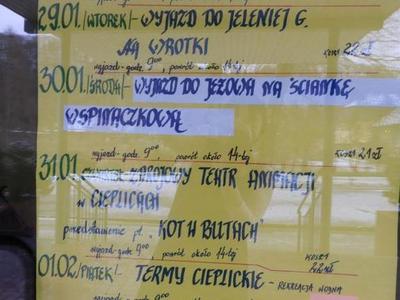 29.01./WTOREK/- WYJAZD DO JELENIEJ G.
NA WROTKI
wyjazd- godz. 9⁰⁰, powrót około 14-tej koszt 22 zł
30.01./ŚRODA/- WYJAZD DO JEŻOWA NA ŚCIANKĘ
WSPINACZKOWĄ
wyjazd- godz. 9⁰⁰, powrót około 14-tej koszt 21 zł
31.01. ZDROJOWY TEATR ANIMACJI
w CIEPLICACH
przedstawienie pt. „KOT W BUTACH"
wyjazd- godz. 9⁰⁰ powrót około 14-tej koszt 22 zł
01.02/PIĄTEK/- TERMY CIEPLICKIE - REKREACJA WODNA
godz. 9⁰⁰